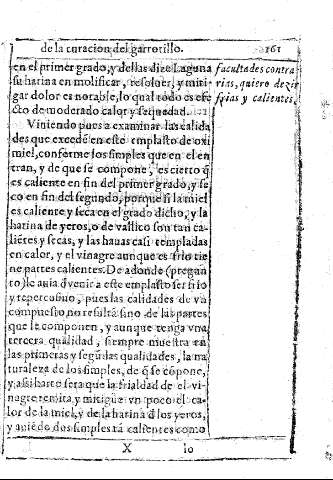 de la curacion del garrotillo. 161
en el primer grado, y dellas dize Laguna
su harina en molificar, resoluer, y miti-
gar dolor es notable, lo qual todo es efe
cto de moderado calor y sequedad.
Viniendo pues a examinar las calida
des que excedē en este emplasto de oxi
miel, conforme los simples que en el en
tran, y de que se compone, es cierto q̄
es caliente en fin del primer grado, y se
co en fin del segundo, porque si la miel
es caliente y seca en el grado dicho, y la
harina de yeros, o de vallico son tan ca-
liētes y secas, y las hauas casi templadas
en calor, y el vinagre aunque es frio tie
ne partes calientes. De adonde (pregun
to) le auia d̄ venir a este emplasto ser frio
y repercusiuo, pues las calidades de vn
compuesto no resultā sino de las partes
que le componen, y aunque tenga vna
tercera qualidad, siempre muestra en
las primeras y segūdas qualidades, la na
turaleza de los simples, de q̄ se cōpone,
y assi harto sera que la frialdad de el vi-
nagre remita y mitigue vn poco el ca-
lor de la miel, y de la harina d̄ los yeros,
y auiēdo dos simples tā calientes como
X io
facultades contra
rias, quiero dezir
frias y calientes.